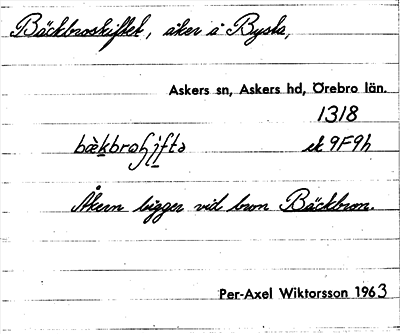 Bäckbroskiftet, åker å Bysta,
Askers sn, Askers hd, Örebro län.
1318
ek 9F9h
Åkern ligger vid bron Bäckbron.
Per-Axel Wiktorsson 1963